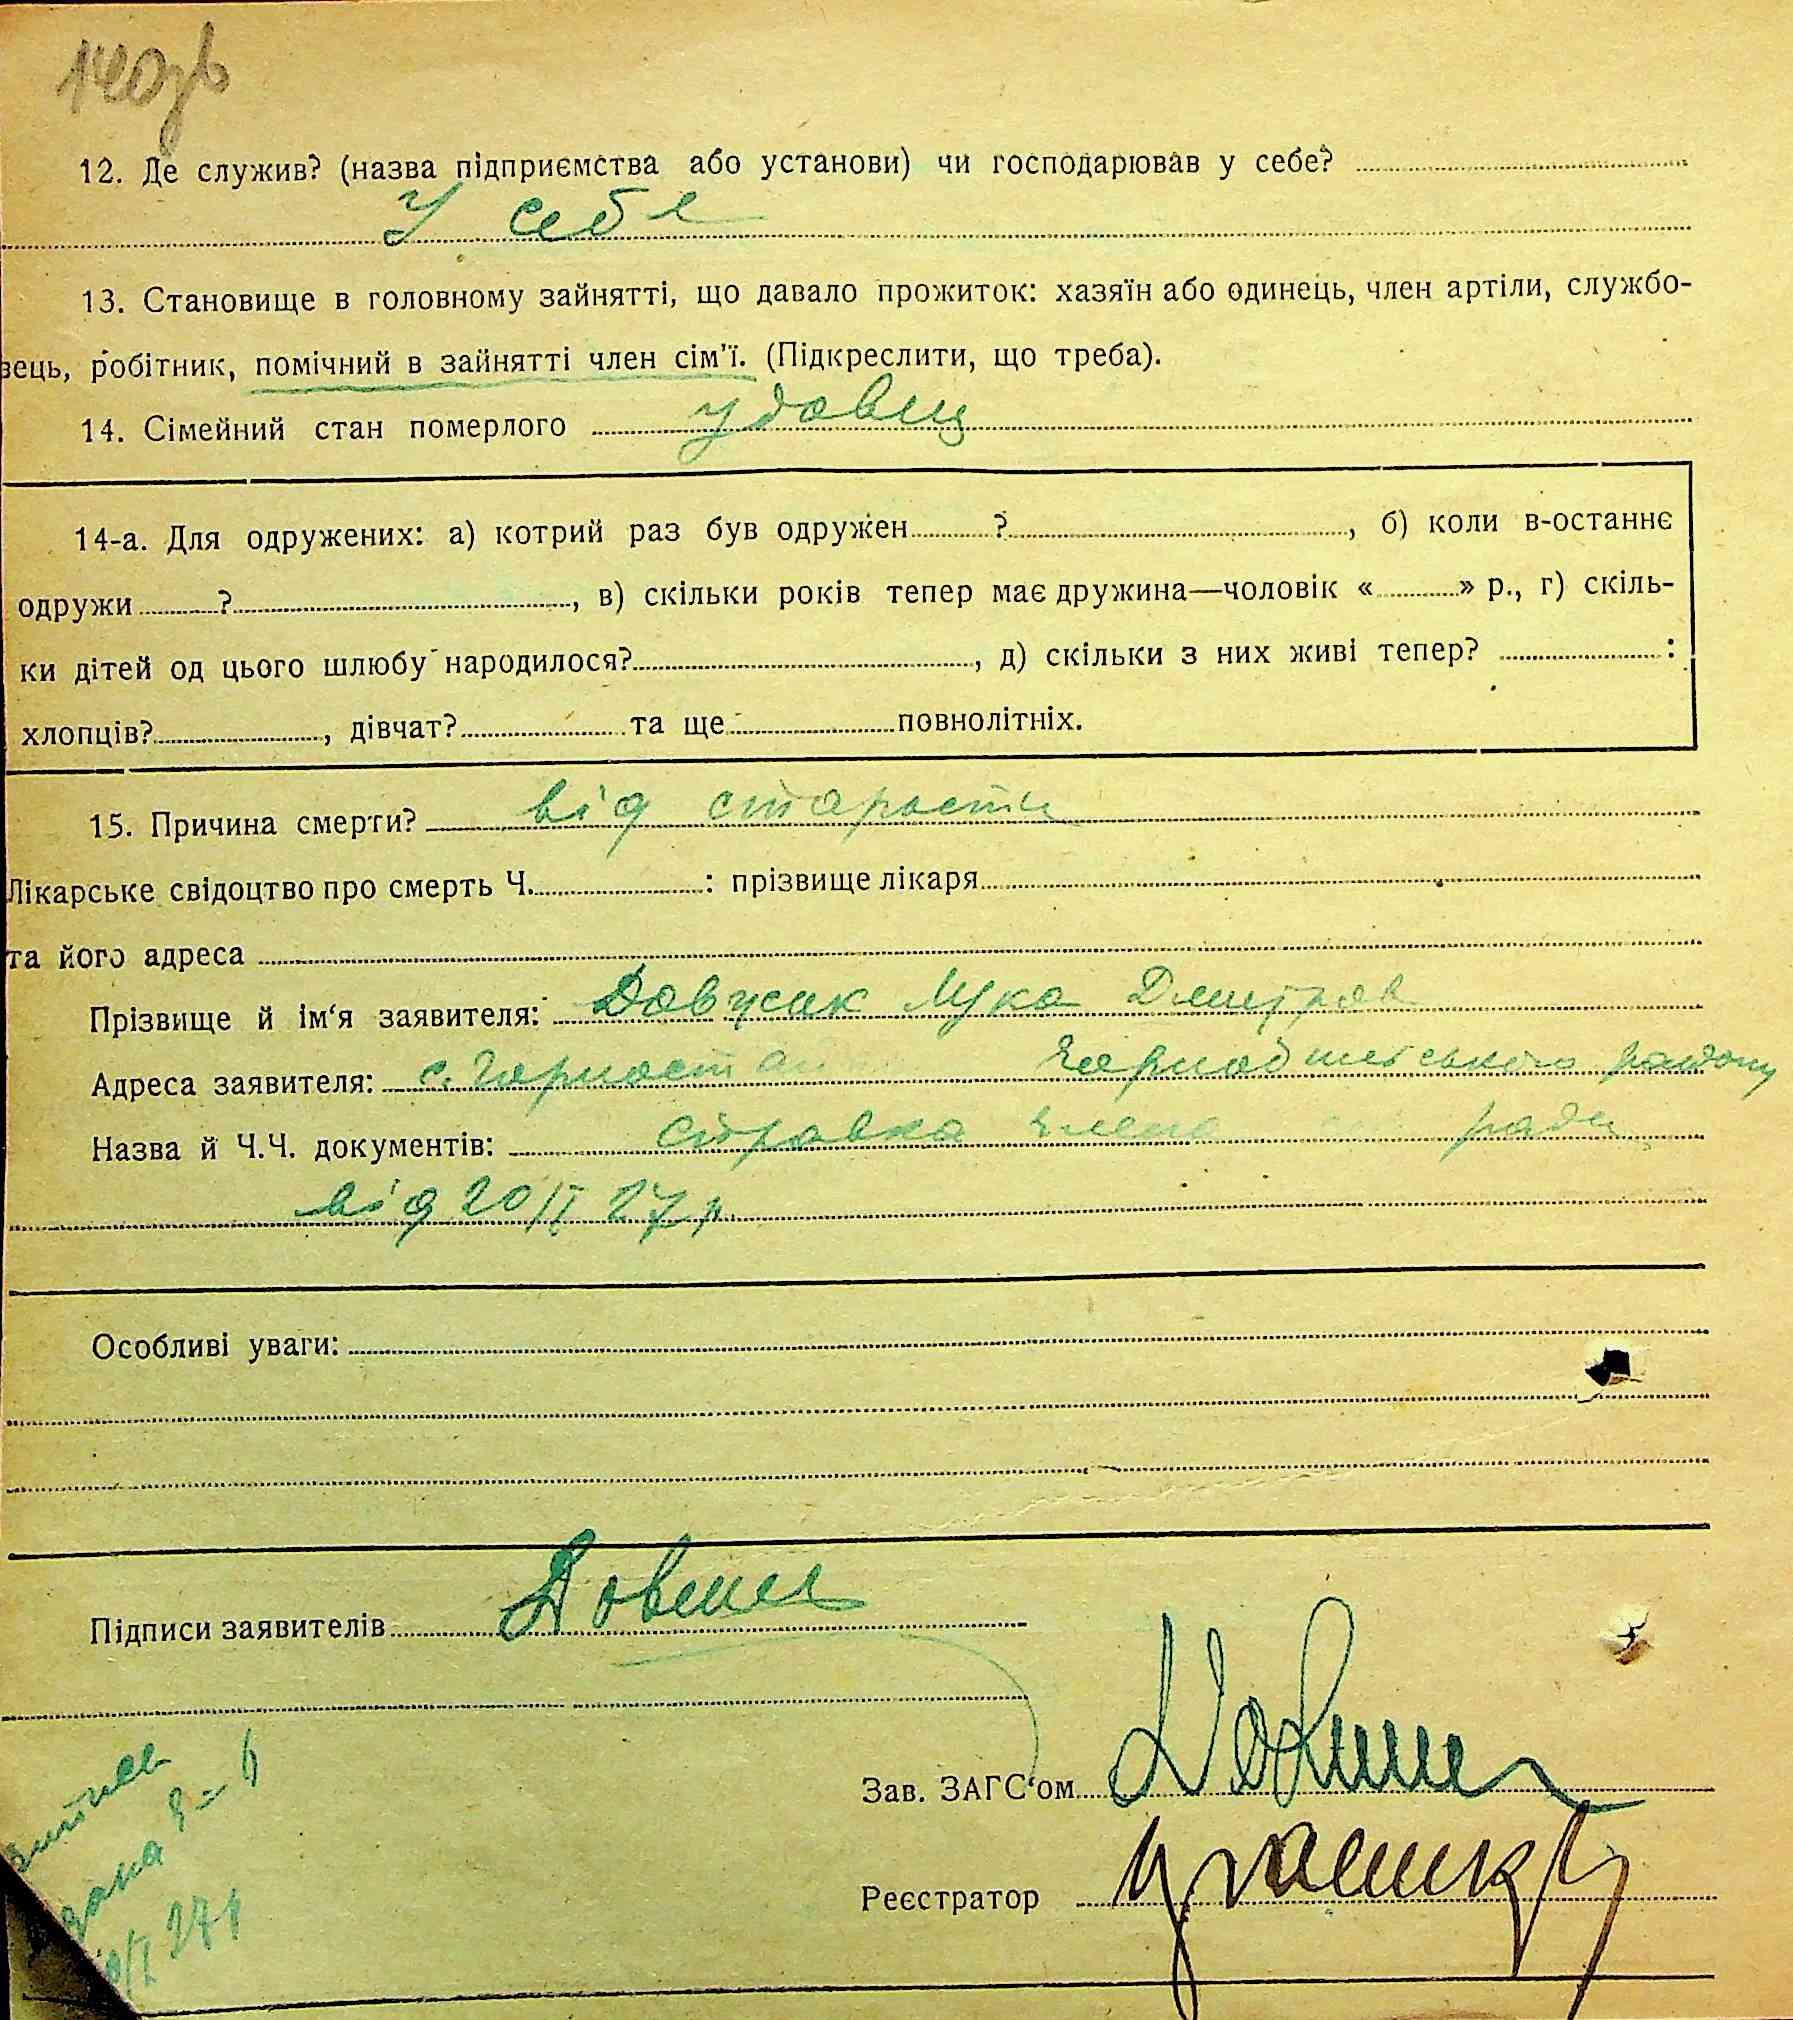 140зв
12. Де служив? (назва підприємства або установи) чи господарював у себе?
У себе
13. Становище в головному зайнятті, що давало прожиток: хазяїн або одинець, член артіли, службо-
вець, робітник, помічний в зайнятті член сім'ї. (Підкреслити, що треба).
14. Сімейний стан померлого удовец
14-а. Для одружених: а) котрий раз був одружен ? , б) коли в-останнє
одружи ? , в) скільки років тепер має дружина—чоловік « » р., г) скіль-
ки дітей од цього шлюбу народилося? , д) скільки з них живі тепер? :
хлопців? , дівчат? та ще повнолітніх.
15. Причина смерти? від старости
Лікарське свідоцтво про смерть Ч. : прізвище лікаря
та його адреса
Прізвище й ім‘я заявителя: Лука Дмитров
Адреса заявителя: с. Горностай района
Назва й Ч.Ч. документів: справка ради
від 20/I 27 р.
Особливі уваги:
Підписи заявителів
Зав. ЗАГС‘ом
Реєстратор
/I 27 р